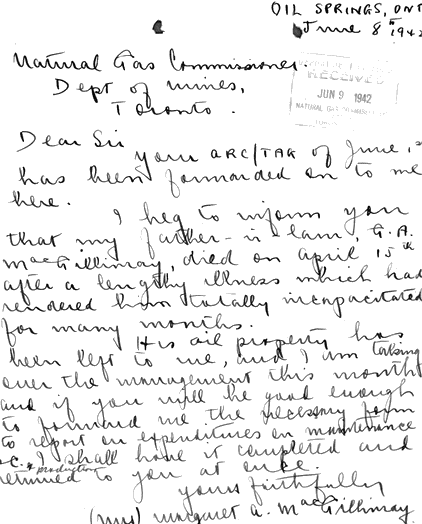 OIL SPRINGS, ONT
June 8th 1942
Natural Gas Commissioner
Dept of mines,
Toronto.
RECEIVED
JUN 9 1942
NATURAL GAS
Dear Sir
your ARC/TAK of June 1st
has been forwarded on to me
here.
I beg to inform you
that my father-in-law, G.A.
MacGillivray, died on April 15th
after a lengthy illness which had
rendered him totally incapacitated
for many months.
His oil property has
been left to me, and I am taking
over the management this month
and if you will be good enough
to forward me the necessary form
to report on expenditures on maintenance
& production
I shall have it completed and
returned to you at once.
yours faithfully
(Mrs) Margaret A. MacGillivray